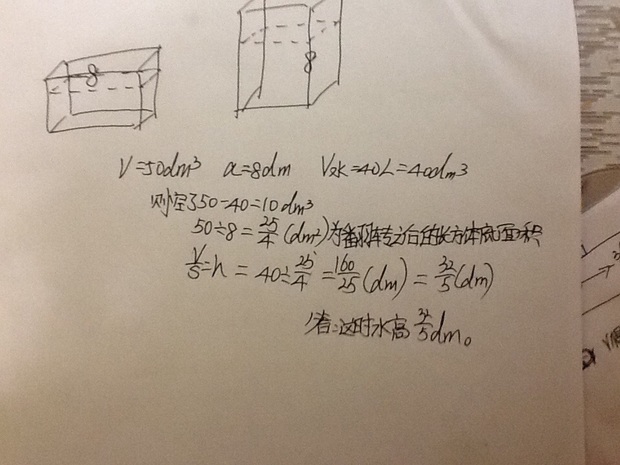 8
8
V=50dm³ a=8dm V水=40L=40dm³
则空了50-40=10dm³
50÷8=25/4(dm²)为翻转之后的长方体底面积
V/S=h=40÷25/4=160/25(dm)=32/5(dm)
答:这时水高32/5dm。